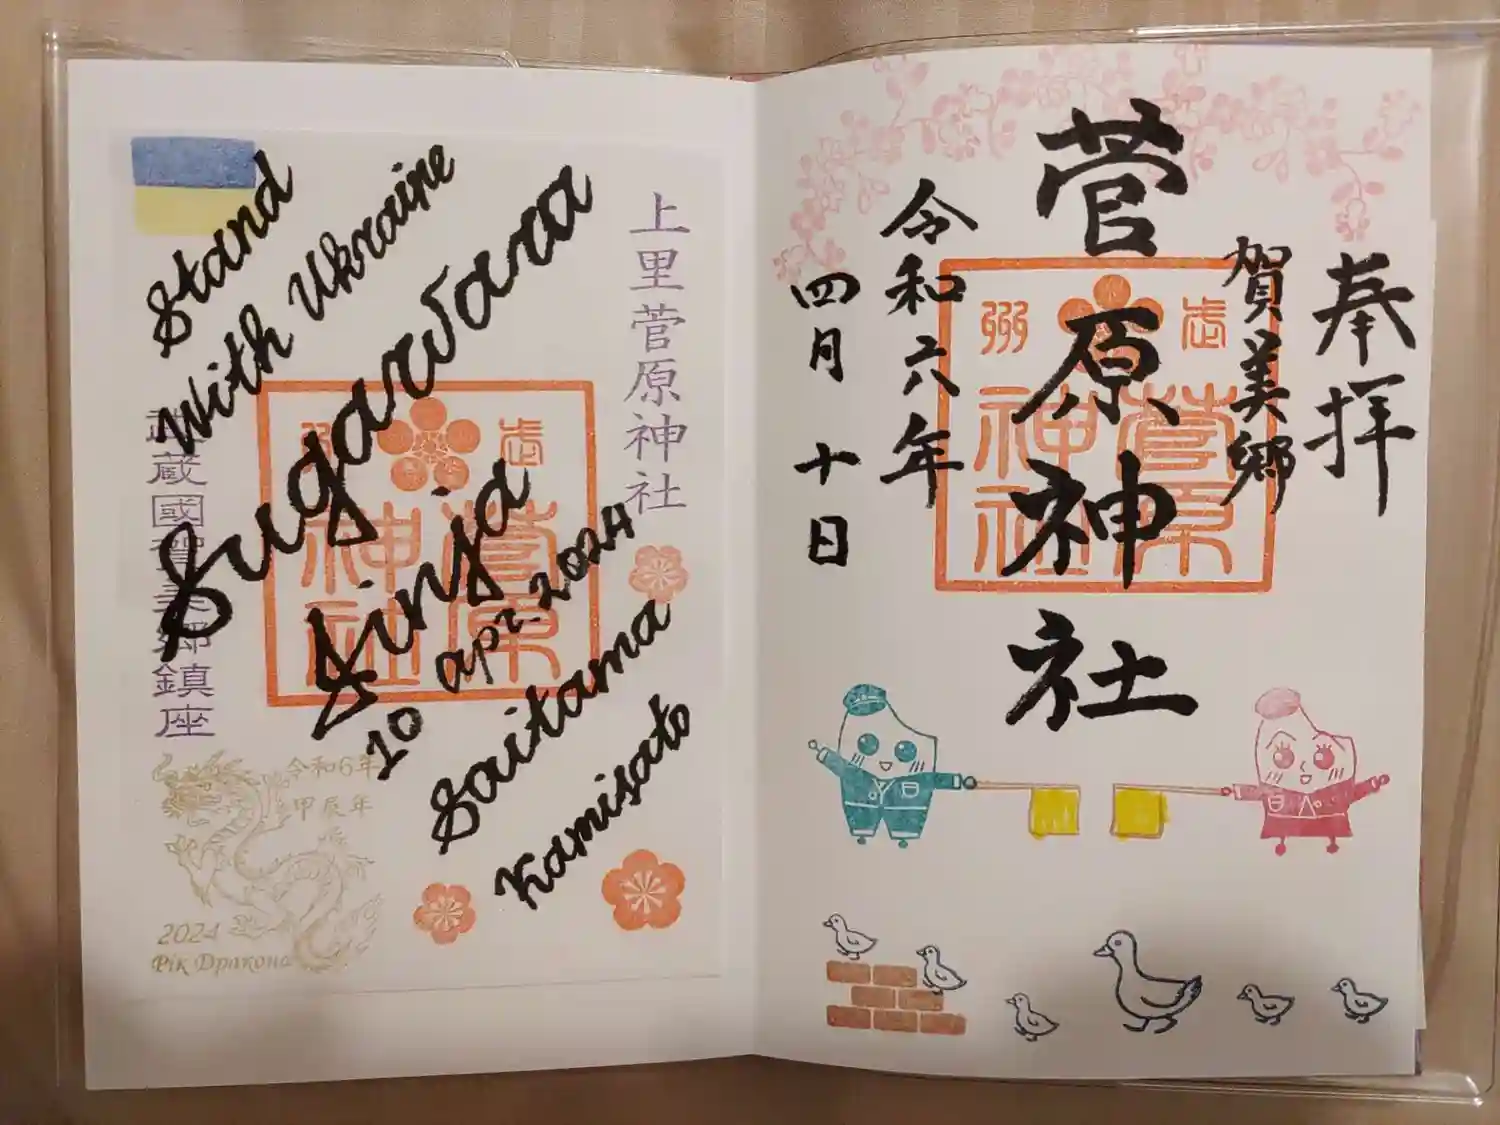 Stand
With Ukraine
Sugawara
Jinja
10 apr. 2024
Saitama
Kamisato
上里菅原神社
武蔵國賀美郷鎮座
菅原
神社
令和6年
甲辰年
2024
Рік Дракона
奉拝
賀美郷
菅原神社
令和六年
四月十日
菅原
神社